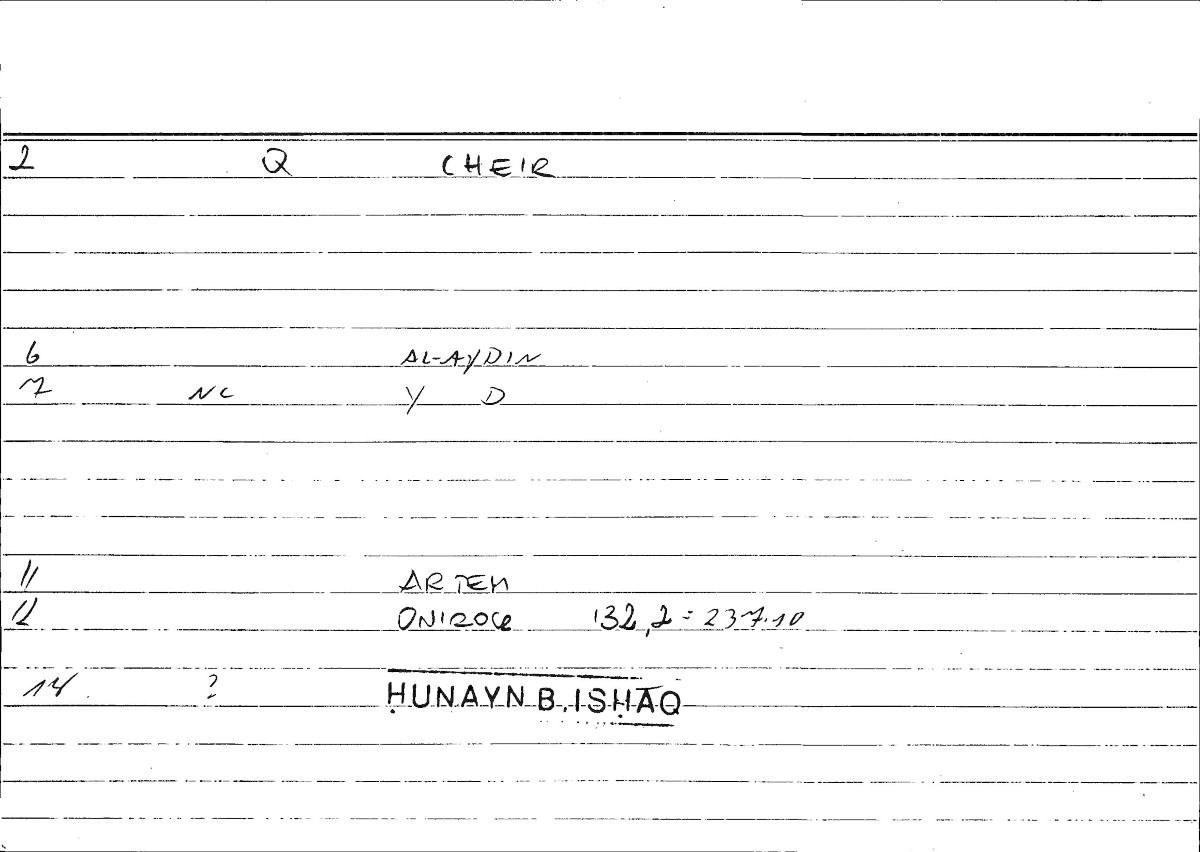 2 Q CHEIR
6 AL-AYDIN
7 NC Y D
11 ARTEM
12 ONIROCR 132,2 = 237.10
14 ? ḤUNAYN B. ISḤĀQ